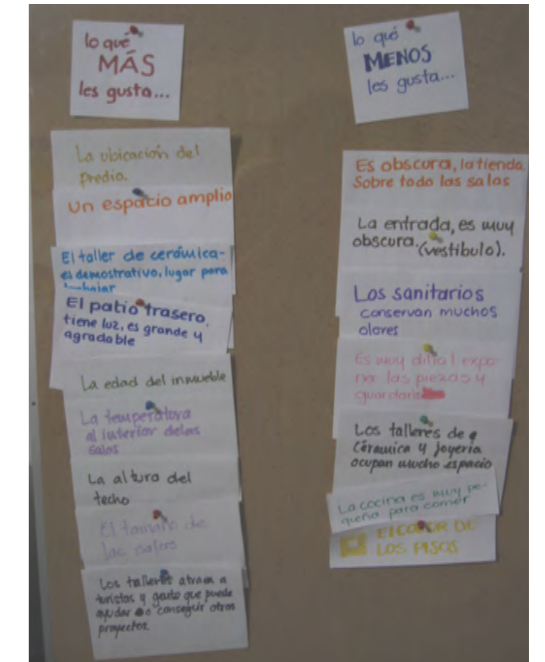 lo qué
MÁS
les gusta...
La ubicación del
predio.
Un espacio amplio
El taller de cerámica-
es demostrativo, lugar para
trabajar
El patio trasero,
tiene luz, es grande y
agradable
La edad del inmueble
La temperatura
al interior delas
salas
La altura del
techo
El tamaño de
las
Los talleres atraen a
turistas y gente que puede
ayudar o conseguir otros
proyectos.
lo qué
MENOS
les gusta...
Es obscura, la tienda
Sobre todo las salas
La entrada, es muy
obscura. (vestíbulo).
Los sanitarios
conservan muchos
olores
Es muy dificil expo-
ner las piezas y
guardarlas
Los talleres de
Cerámica y joyería
ocupan mucho espacio
La cocina es muy pe-
queña para comer
El COLOR DE
LOS PISOS